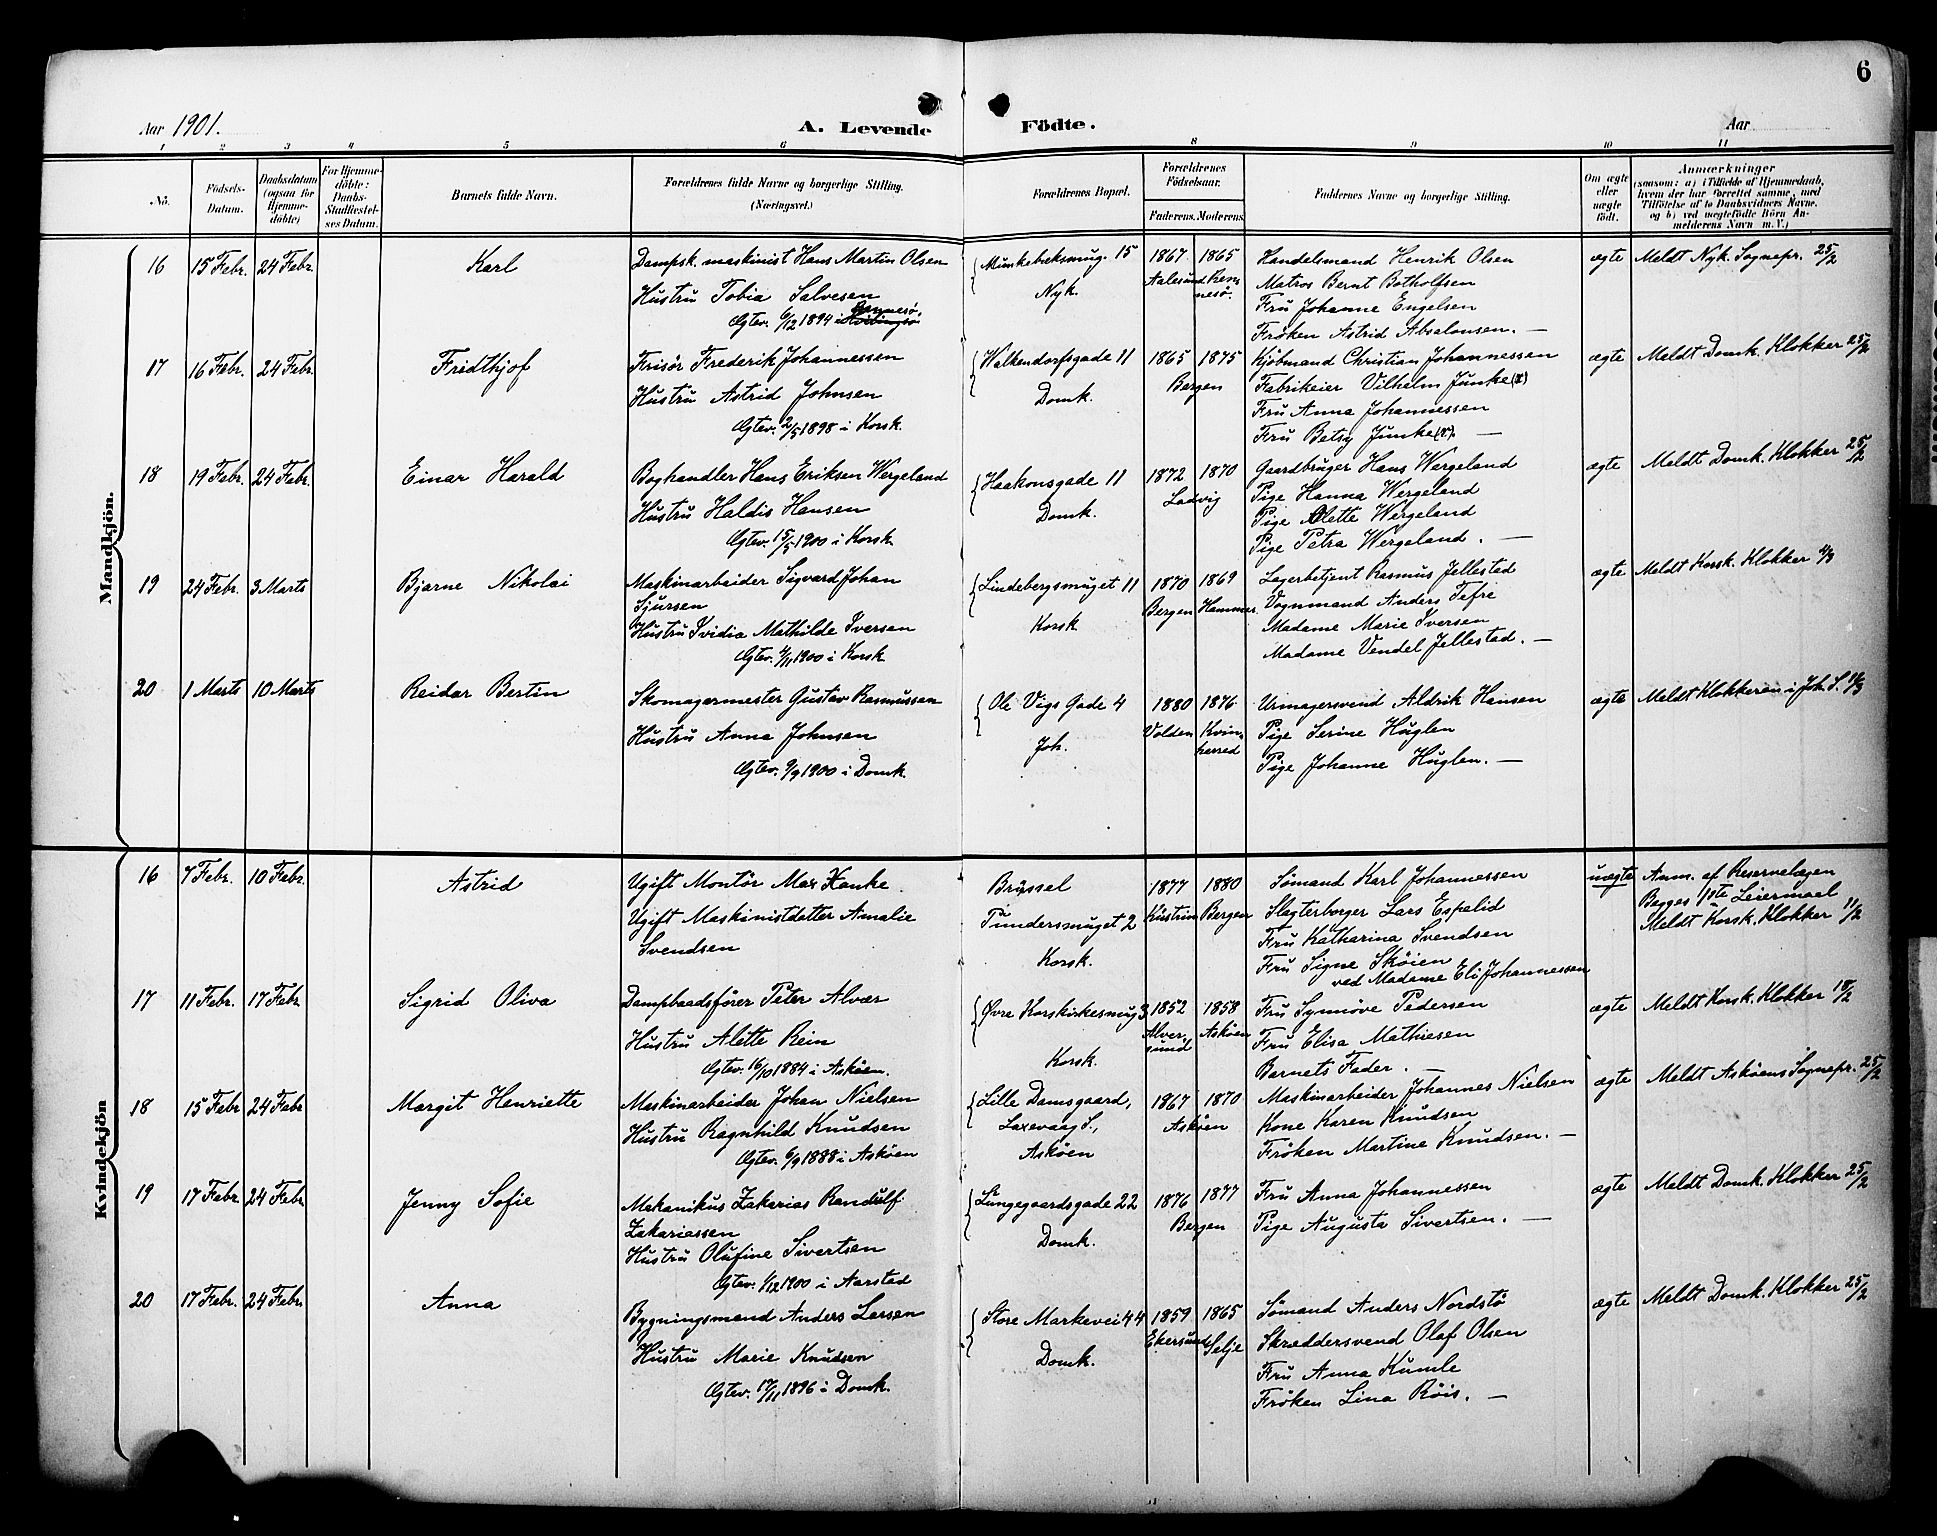 6
Aar 1901.
A. Levende Födte.
Aar
1 2 3 4 5 6 8 9 10 11
No.
Födsels-Datum.
Daabsdatum (ogsaa for Hjemmedöbte)
For Hjemmedöbte: Daabs-Stadfæstelses Datum.
Barnets fulde Navn.
Forældrenes fulde Navne og borgerlige Stilling. (Næringsvei.)
Forældrenes Bopæl.
Forældrenes Födselsaar.
Faderens. Moderens.
Faddernes Navne og borgerlige Stilling.
Om ægte eller uægte födt.
Anmærkninger
(saasom: a) i Tilfælde af Hjemmedaab, hvem der har forrettet samme, med Tilföielse af to Daabsvidners Navne, og b) ved uægtefödte Börn Anmelderens Navn m.V.)
Mandkjön.
16 15 Febr. 24 Febr. Karl
Dampsk. maskinist Hans Martin Olsen
Hustru Tobia Salvesen
Ægtev. 6/12 1894 i Rennesø.
Munkebæksmug. 15
Nyk.
1867 1865
Aalesund Rennesø.
Handelsmand Henrik Olsen
Matros Bernt Botholfsen
Fru Johanne Engelsen
Frøken Astrid Absalonsen. —
ægte Meldt Nyk. Sognepr. 25/2
17 16 Febr. 24 Febr. Fridthjof
Frisør Frederik Johannessen
Hustru Astrid Johnsen
Ægtev. 2/5 1898 i Korsk.
Walkendorfsgade 11
Domk.
1865 1875
Bergen
Kjøbmand Christian Johannessen
Fabrikeier Vilhelm Junke (?)
Fru Anna Johannessen
Fru Betsy Junke (?). —
ægte Meldt Domk. Klokker 25/2
18 19 Febr. 24 Febr. Einar Harald
Boghandler Hans Eriksen Wergeland
Hustru Haldis Hansen
Ægtev. 15/5 1900 i Korsk.
Haakonsgade 11
Domk.
1872 1870
Ladvig
Gaardbruger Hans Wergeland
Pige Hanna Wergeland
Pige Olette Wergeland
Pige Petra Wergeland. —
ægte Meldt Domk. Klokker 25/2
19 24 Febr. 3 Marts Bjarne Nikolai
Maskinarbeider Sigvard Johan
Sjursen
Hustru Ovidia Mathilde Iversen
Ægtev. 4/11 1900 i Korsk.
Lindebergsmuget 11
Korsk
1870 1869
Bergen Hammer.
Lagerbetjent Rasmus Jellestad
Vognmand Anders Tefre
Madame Marie Iversen
Madame Vendel Jellestad. —
ægte Meldt Korsk. Klokker 4/3
20 1 Marts 10 Marts Reidar Bertin
Skomagermester Gustav Rasmussen
Hustru Anna Johnsen
Ægtev. 9/9 1900 i Domk.
Ole Vigs Gade 4
Joh.
1880 1876
Volden Kvinherred
Urmagersvend Aldrik Hansen
Pige Serine Huglen
Pige Johanne Huglen. —
ægte Meldt Klokkeren i Joh. S. 11/3
Kvindekjön
16 7 Febr. 10 Febr. Astrid
Ugift Montör Max Hanke.
Ugift Maskinistdatter Amalie
Svendsen
Brüssel
Tundersmuget 2
Korsk.
1877 1880
Küstrin Bergen
Sømand Karl Johannessen
Slagterborger Lars Espelid
Fru Katharina Svendsen
Fru Signe Skøien
ved Madame Eli Johannessen
uægte Anm. af Reservelægen
Begges 1ste Leiermaal
Meldt Korsk. Klokker 11/2
17 11 Febr. 17 Febr. Sigrid Oliva
Dampbaadsfører Peter Alvær
Hustru Alette Rein
Ægtev. 16/10 1884 i Askøen.
Øvre Korskirkesmug 3
Korsk.
1852 1858
Alversund Askøen
Fru Synnøve Pedersen
Fru Elisa Mathiesen
Barnets Fader. —
ægte Meldt Korsk. Klokker 18/2
18 15 Febr. 24 Febr. Margit Henriette
Maskinarbeider Johan Nielsen
Hustru Ragnhild Knudsen
Ægtev. 6/9 1888 i Askøen
Lille Damsgaard,
Laxevaag S.,
Askøen
1867 1870
Askøen
Maskinarbeider Johannes Nielsen
Kone Karen Knudsen
Frøken Martine Knudsen. —
ægte Meldt Askøens Sognepr. 25/2
19 17 Febr. 24 Febr. Jenny Sofie
Mekanikus Zakarias Randulf
Zakariassen
Hustru Olufine Sivertsen
Ægtev. 1/12 1900 i Aarstad
Lungegaardsgade 22
Domk.
1876 1877
Bergen
Fru Anna Johannessen
Pige Augusta Sivertsen. —
ægte Meldt Domk. Klokker 25/2
20 17 Febr. 24 Febr. Anna
Bygningsmand Anders Larsen
Hustru Marie Knudsen
Ægtev. 17/11 1896 i Domk.
Store Markevei 44
Domk.
1859 1865
Ekersund Selje
Sømand Anders Nordstø
Skræddersvend Olaf Olsen
Fru Anna Kumle
Frøken Lina Røis. —
ægte Meldt Domk. Klokker 25/2